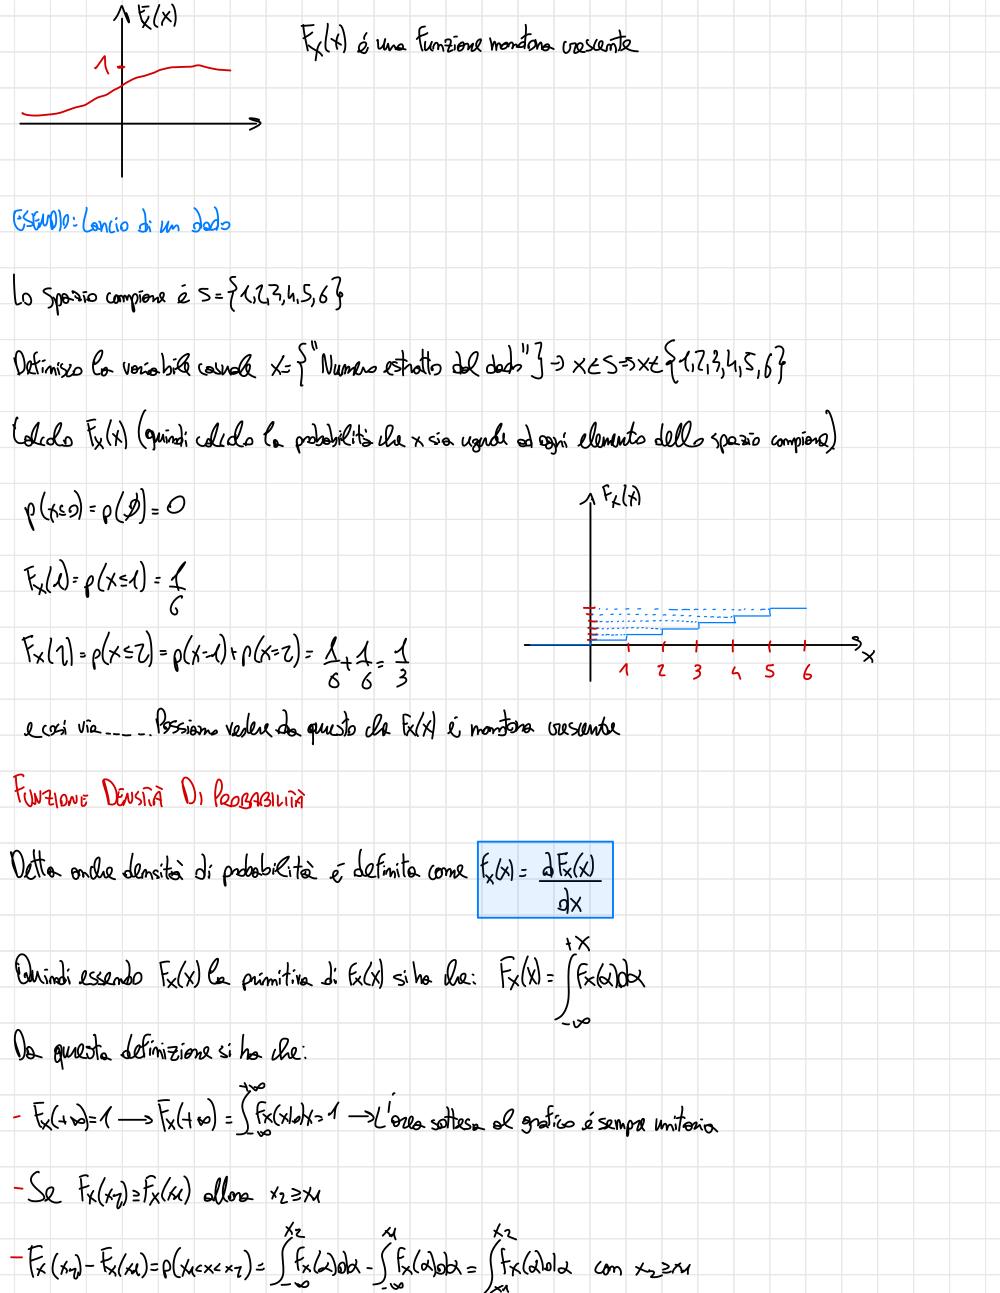 Fx(x)
Fx(x) é una funzione monotona crescente
1
ESEMPIO: Lancio di un dado
Lo spazio campione é S={1,2,3,4,5,6}
Definisco la variabile casuale X={"Numero estratto dal dado"} → X∈S → X∈{1,2,3,4,5,6}
Calcolo Fx(x) (quindi calcolo la probabilità che x sia uguale ad ogni elemento dello spazio campione)
p(x≤0)=p(∅)=0
Fx(x)
Fx(1)=p(x≤1)=1/6
Fx(2)=p(x≤2)=p(x=1)+p(x=2)=1/6+1/6=1/3
1 2 3 4 5 6 x
e così via ..... Possiamo vedere da questo che Fx(x) é monotona crescente
FUNZIONE DENSITÀ DI PROBABILITÀ
Detta anche densità di probabilità é definita come fx(x)=dFx(x)/dx
Quindi essendo Fx(x) la primitiva di fx(x) si ha che: Fx(x)=∫_{-∞}^{+x} fx(α)dα
Da questa definizione si ha che:
- Fx(+∞)=1 → Fx(+∞)=∫_{-∞}^{+∞} fx(x)dx=1 → L'area sottesa al grafico é sempre unitaria
- Se Fx(x2)≥Fx(x1) allora x2≥x1
- Fx(x2)-Fx(x1)=p(x1<x<x2)=∫_{-∞}^{x2} fx(α)dα-∫_{-∞}^{x1} fx(α)dα=∫_{x1}^{x2} fx(α)dα con x2≥x1